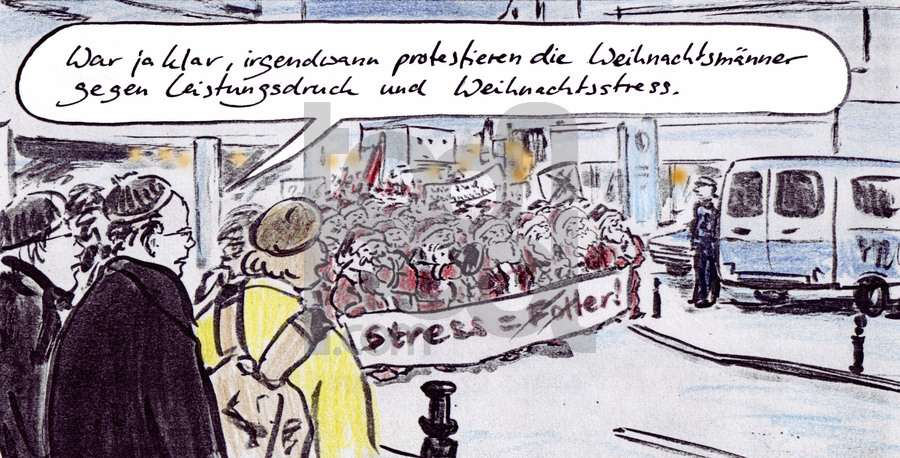 War ja klar, irgendwann protestieren die Weihnachtsmänner
gegen Leistungsdruck und Weihnachtsstress.
Stress = Folter!